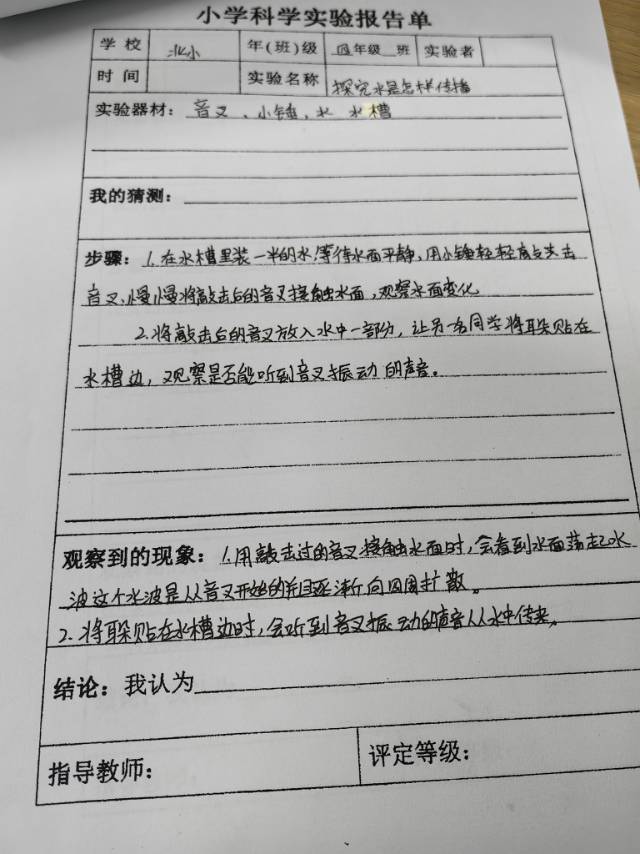 小学科学实验报告单
学校 北小 年(班)级 四年级 班 实验者
时间 实验名称 探究水是怎样传播
实验器材：音叉、小锤、水 水槽
我的猜测：
步骤：1.在水槽里装一半的水,等待水面平静,用小锤轻轻敲击
音叉,慢慢将敲击后的音叉接触水面,观察水面变化
2.将敲击后的音叉放入水中一部分,让另一名同学将耳朵贴在
水槽边,观察是否能听到音叉振动的声音。
观察到的现象：1.用敲击过的音叉接触水面时,会看到水面荡起水
波这个水波是从音叉开始的并且逐渐向四周扩散。
2.将耳朵贴在水槽边时,会听到音叉振动的声音从水中传来。
结论：我认为
指导教师： 评定等级：